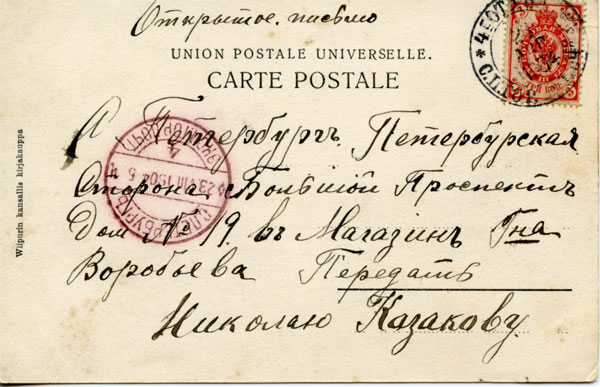 Открытое письмо
UNION POSTALE UNIVERSELLE.
CARTE POSTALE
С Петербургъ. Петербурская
сторона Большой Проспектъ
Дом № 19. въ Магазинъ Гна
Воробьева Передать
Николаю Казакову.
Wiipurin kansallis kirjakauppa
23 VIII 1904